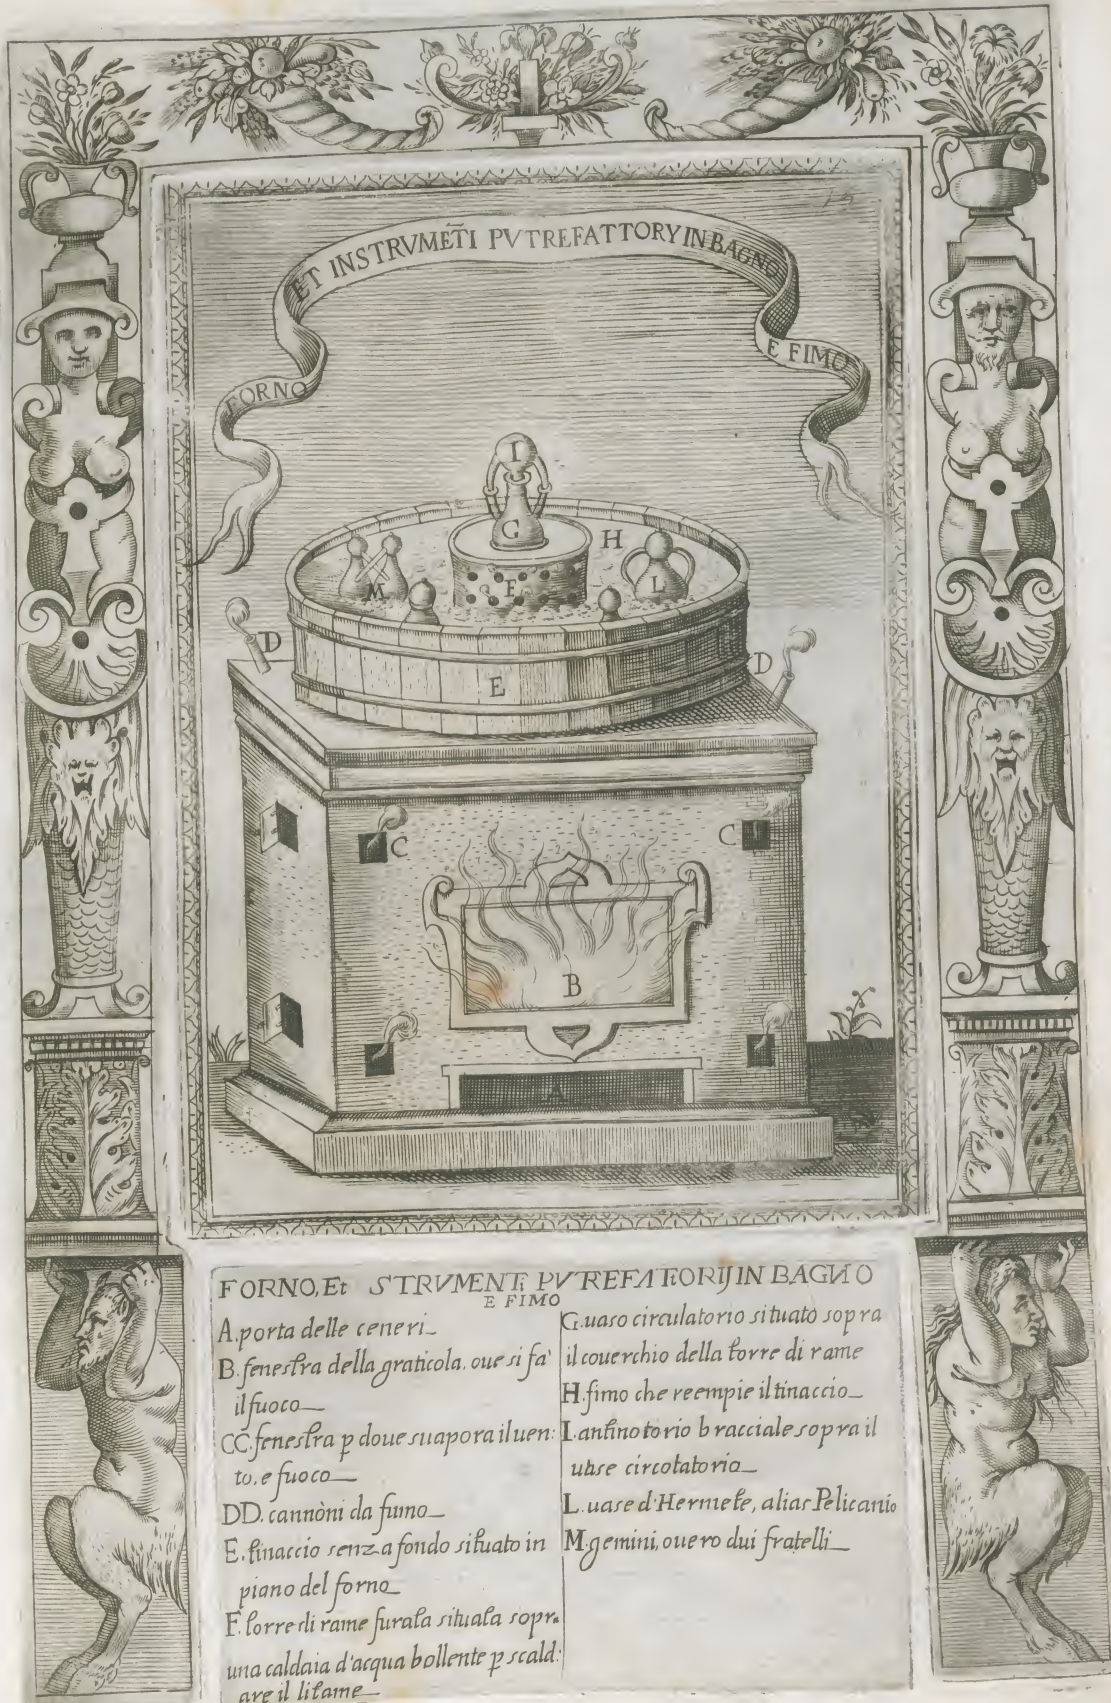 19
FORNO ET INSTRVMEÑTI PVTREFATTORY IN BAGNO E FIMO
I
G
H
F
M
L
D
D
E
C
C
B
A
FORNO, Et STRVMENTI PVTREFATTORIJ IN BAGNO
E FIMO
A. porta delle ceneri
B. fenestra della graticola, oue si fa'
il fuoco
CC. fenestra p doue suapora il uen:
to, e fuoco
DD. cannòni da fumo
E. tinaccio senza fondo situato in
piano del forno
F. torre di rame furata situata sopra
una caldaia d'acqua bollente p scald:
are il litame
G. uaso circulatorio situato sopra
il couerchio della torre di rame
H. fimo che reempie il tinaccio
I. antinotorio bracciale sopra il
uase circotatorio
L. uase d'Hermete, alias Pelicanio
M. gemini, ouero dui fratelli